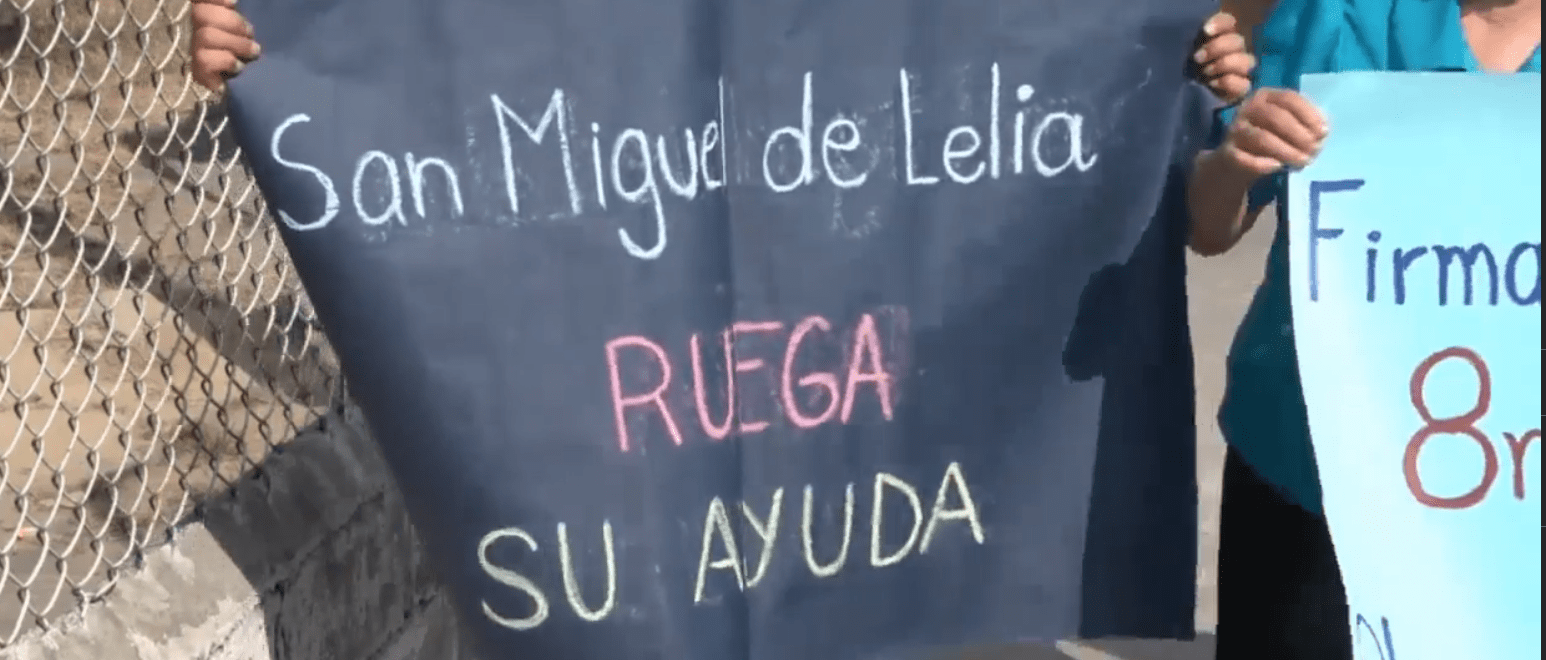 San Miguel de Lelia
RUEGA
SU AYUDA
Firma
8